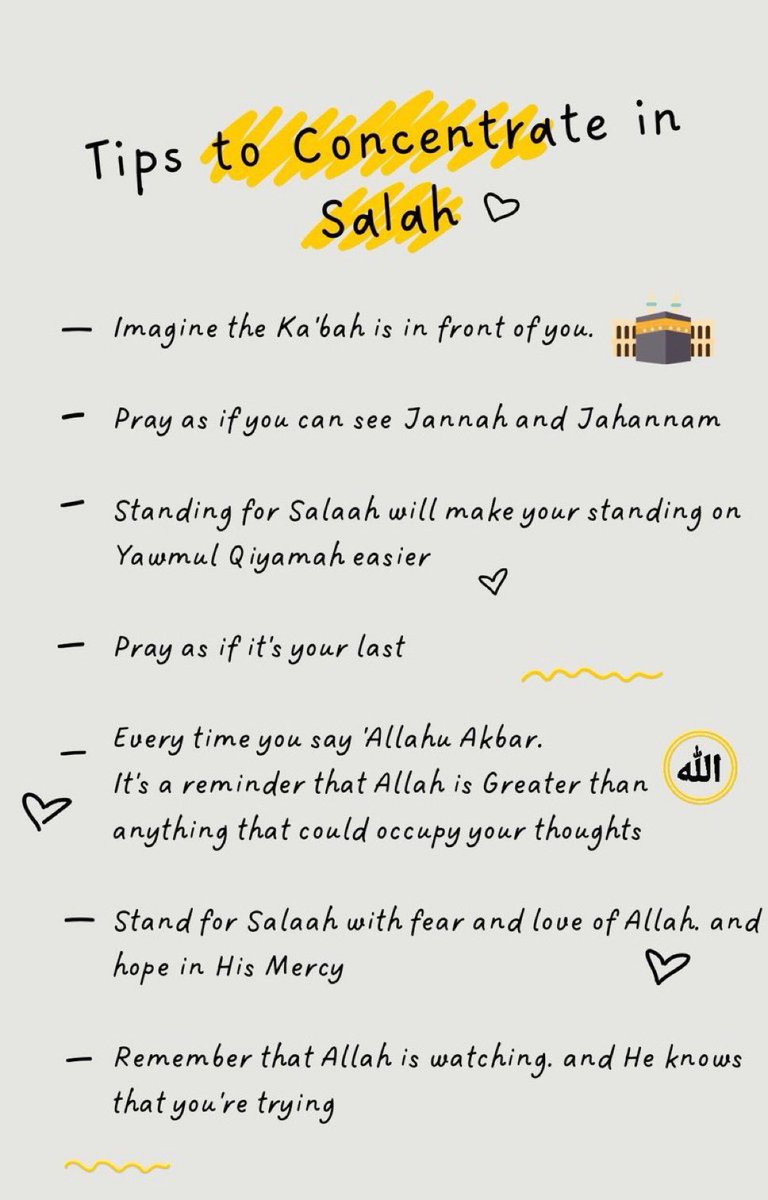 Tips to Concentrate in
Salah
— Imagine the Ka'bah is in front of you.
— Pray as if you can see Jannah and Jahannam
— Standing for Salaah will make your standing on
Yawmul Qiyamah easier
— Pray as if it's your last
— Every time you say 'Allahu Akbar.
It's a reminder that Allah is Greater than
anything that could occupy your thoughts
الله
— Stand for Salaah with fear and love of Allah. and
hope in His Mercy
— Remember that Allah is watching. and He knows
that you're trying